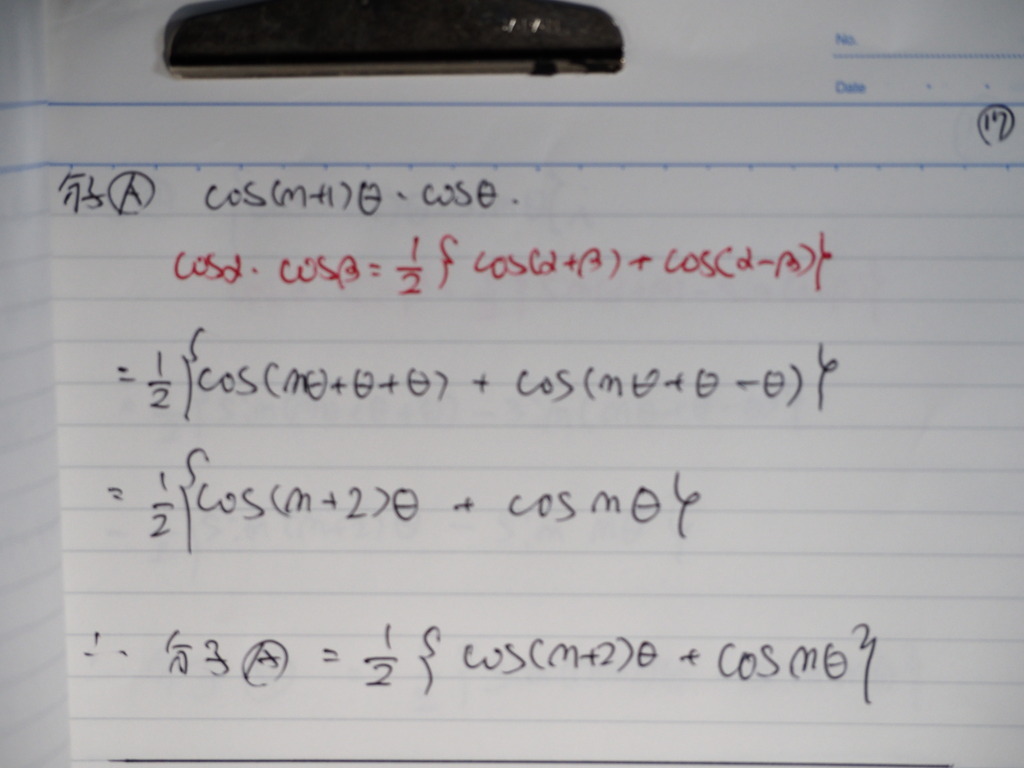 No.
Date
⑰
分子Ⓐ cos(n+1)θ・cosθ.
cosα・cosβ=1/2{cos(α+β)+cos(α-β)}
=1/2{cos(nθ+θ+θ)+cos(nθ+θ-θ)}
=1/2{cos(n+2)θ+cos nθ}
∴ 分子Ⓐ=1/2{cos(n+2)θ+cos nθ}